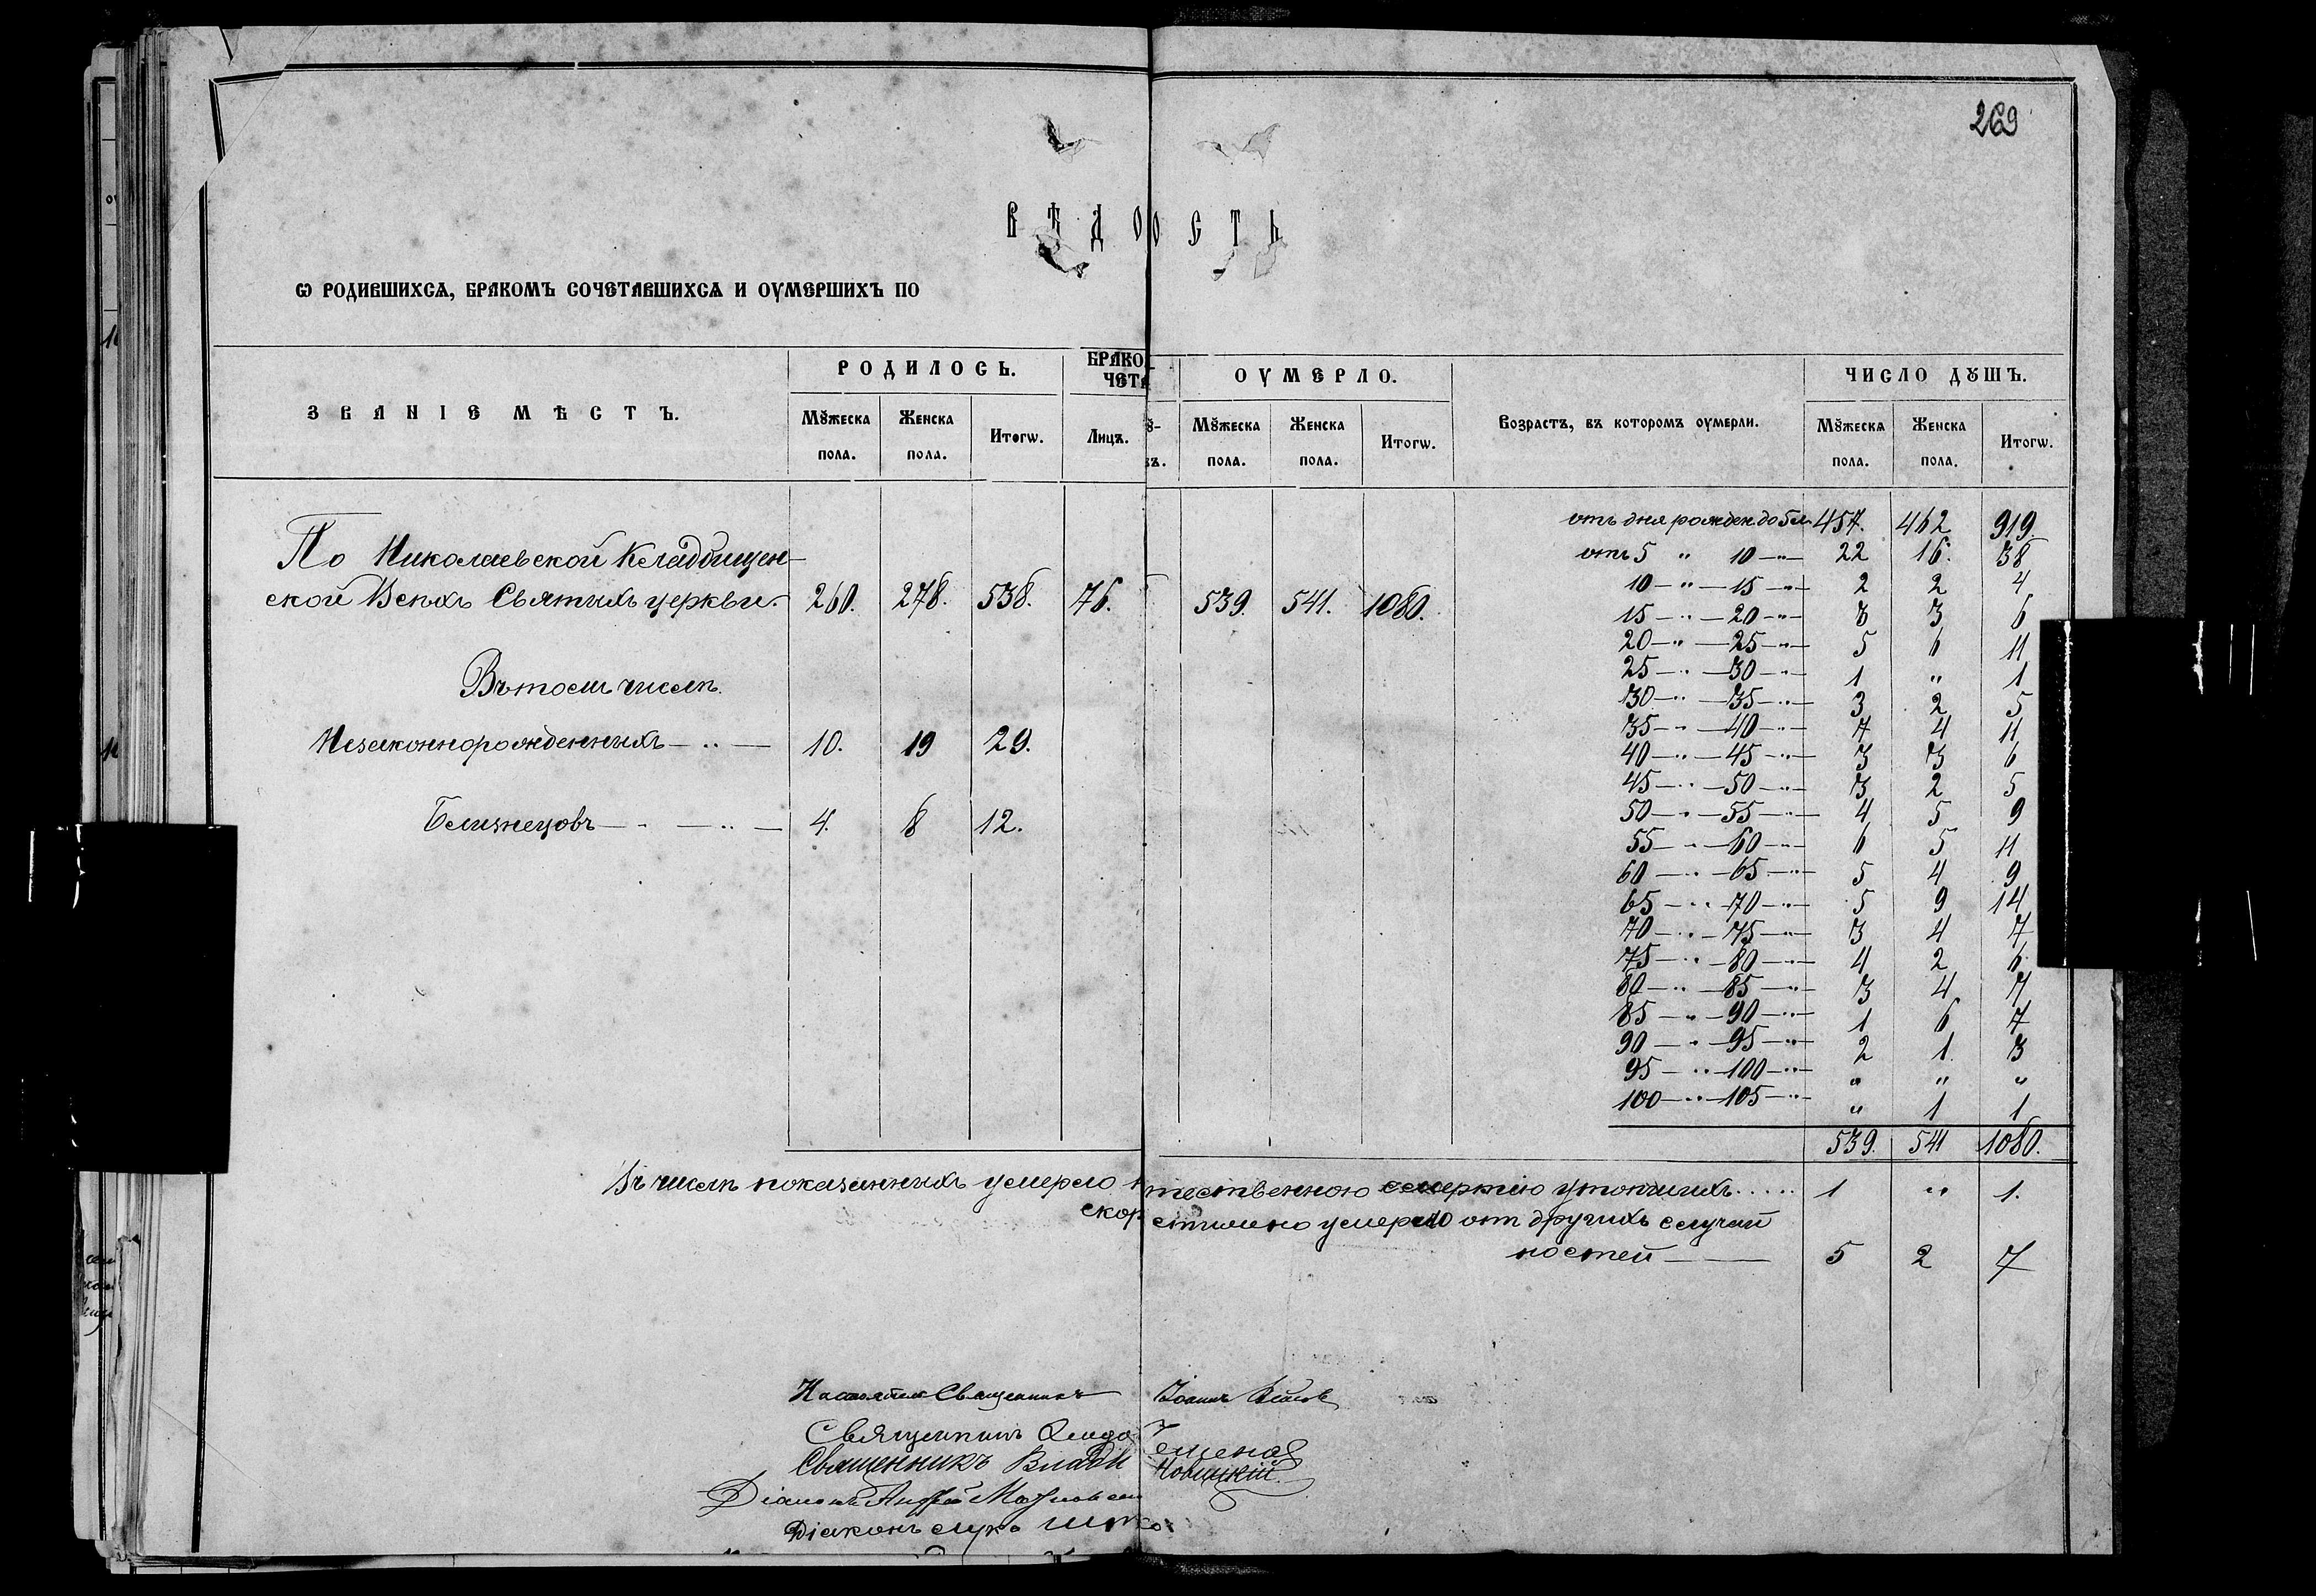 269
ВѢДО ОСТЬ
Ѡ РОДИВШИХСѦ, БРАКОМЪ СОЧЕТАВШИХСѦ И ОУМЕРШИХЪ ПО
ЗВАНІЕ МѢСТЪ. РОДИЛОСЬ. БРАКО ЧЕТА ОУМЕРЛО. Возрастъ, въ которомъ оумерли. ЧИСЛО ДꙊШЪ.
Мꙋжеска пола. Женска пола. Итогѡ. Лицъ. Мꙋжеска пола. Женска пола. Итогѡ. Мꙋжеска пола. Женска пола. Итогѡ.
По Николаевской Кладбищен-
ской Всѣхъ Святыхъ церкви. 260. 278. 538. 76. 539. 541. 1080.
Въ томъ числѣ
Незаконнорожденныхъ — " — 10. 19 29.
Близнецовъ — " — " — 4. 8 12.
отъ дня рожден. до 5 л. 457. 462 919
отъ 5 " 10 — " — 22 16. 38
10 — " — 15 — " — 2 2 4
15 — " — 20 — " — 3 3 6
20 — " — 25 — " — 5 6 11
25 — " — 30 — " — 1 " 1
30 — " — 35 — " — 3 2 5
35 — " — 40 — " — 7 4 11
40 — " — 45 — " — 3 3 6
45 — " — 50 — " — 3 2 5
50 — " — 55 — " — 4 5 9
55 — " — 60 — " — 6 5 11
60 — " — 65 — " — 5 4 9
65 — " — 70 — " — 5 9 14
70 — " — 75 — " — 3 4 7
75 — " — 80 — " — 4 2 6
80 — " — 85 — " — 3 4 7
85 — " — 90 — " — 1 6 7
90 — " — 95 — " — 2 1. 3
95 — " — 100 — " — " " "
100 — " — 105 — " — " 1 1
539. 541 1080.
Въ числѣ показанныхъ умерло тественною смертію утопшихъ..... 1 " 1.
скор стижно умерло отъ другихъ случай
ностей — 5 2 7
Настоятель Священникъ Іоаннъ
Священникъ
Священникъ Влади Новицкій
Діаконъ Андрей
Діаконъ Лука